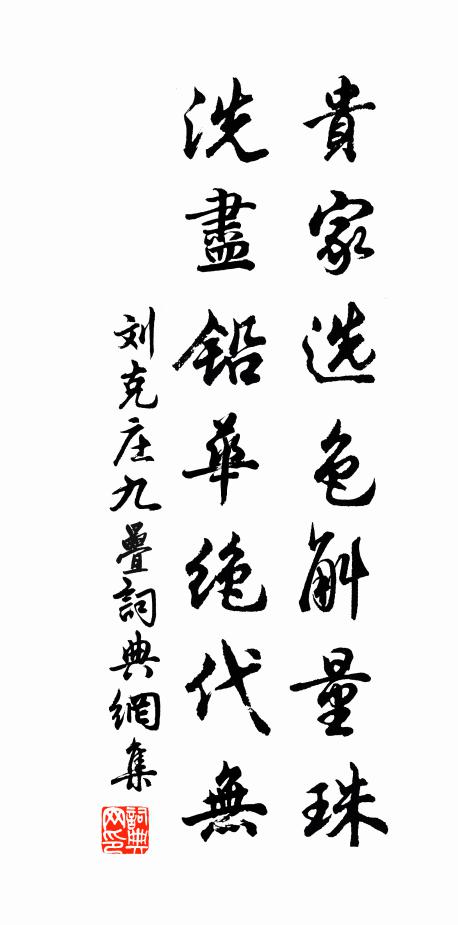 貴家选色斛量珠
洗盡鉛華绝代無
刘克庄九疊詞典網集
詞典网印